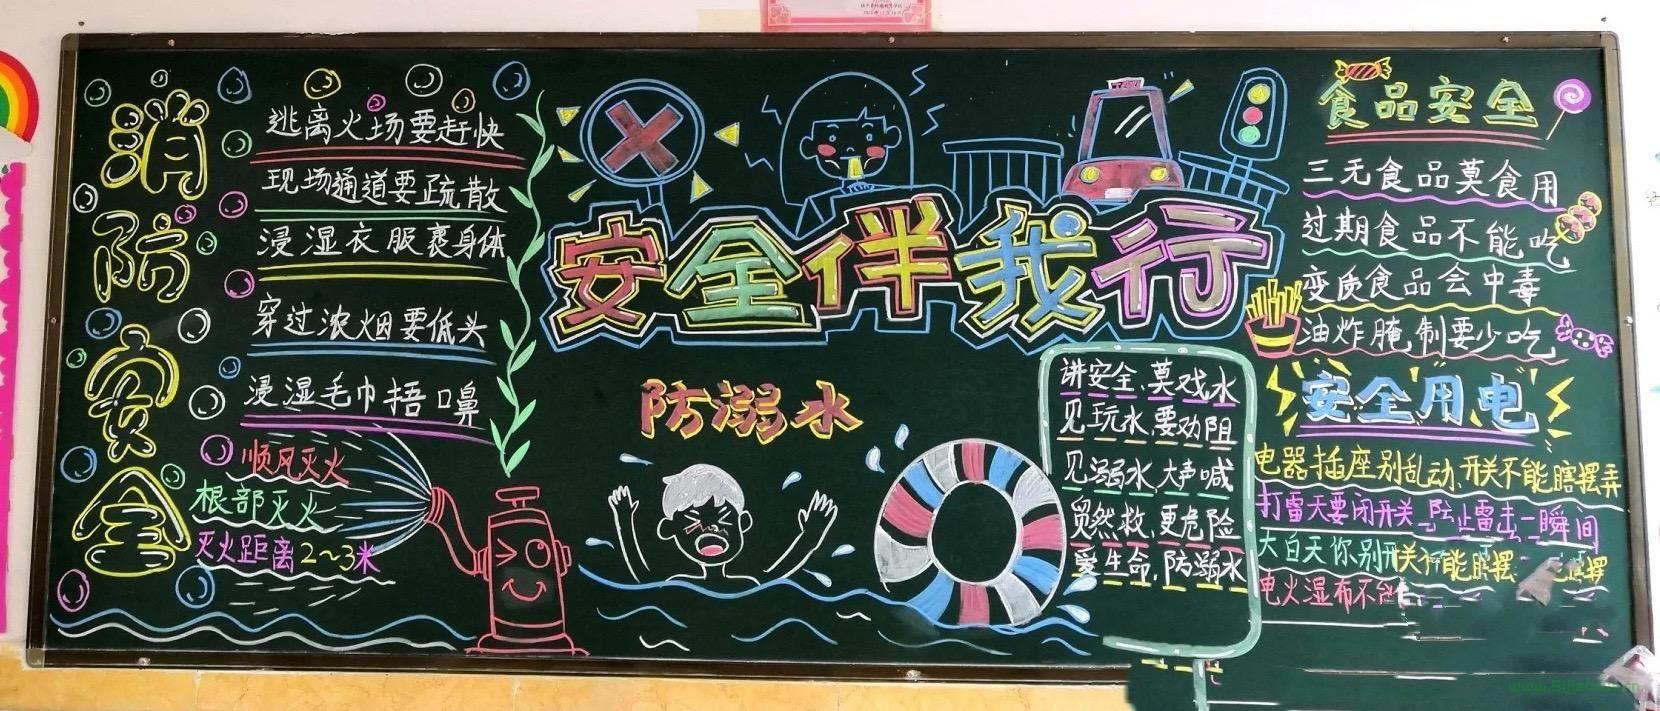 消防安全
逃离火场要赶快
现场通道要疏散
浸湿衣服裹身体
穿过浓烟要低头
浸湿毛巾捂口鼻
顺风灭火
根部灭火
灭火距离2～3米
安全伴我行
防溺水
讲安全,莫戏水
见玩水,要劝阻
见溺水,大声喊
贸然救,更危险
爱生命,防溺水
食品安全
三无食品莫食用
过期食品不能吃
变质食品会中毒
油炸腌制要少吃
安全用电
电器插座别乱动,开关不能瞎摆弄
打雷天要闭开关 防止雷击一瞬间
大白天你别开关
电火湿布不能